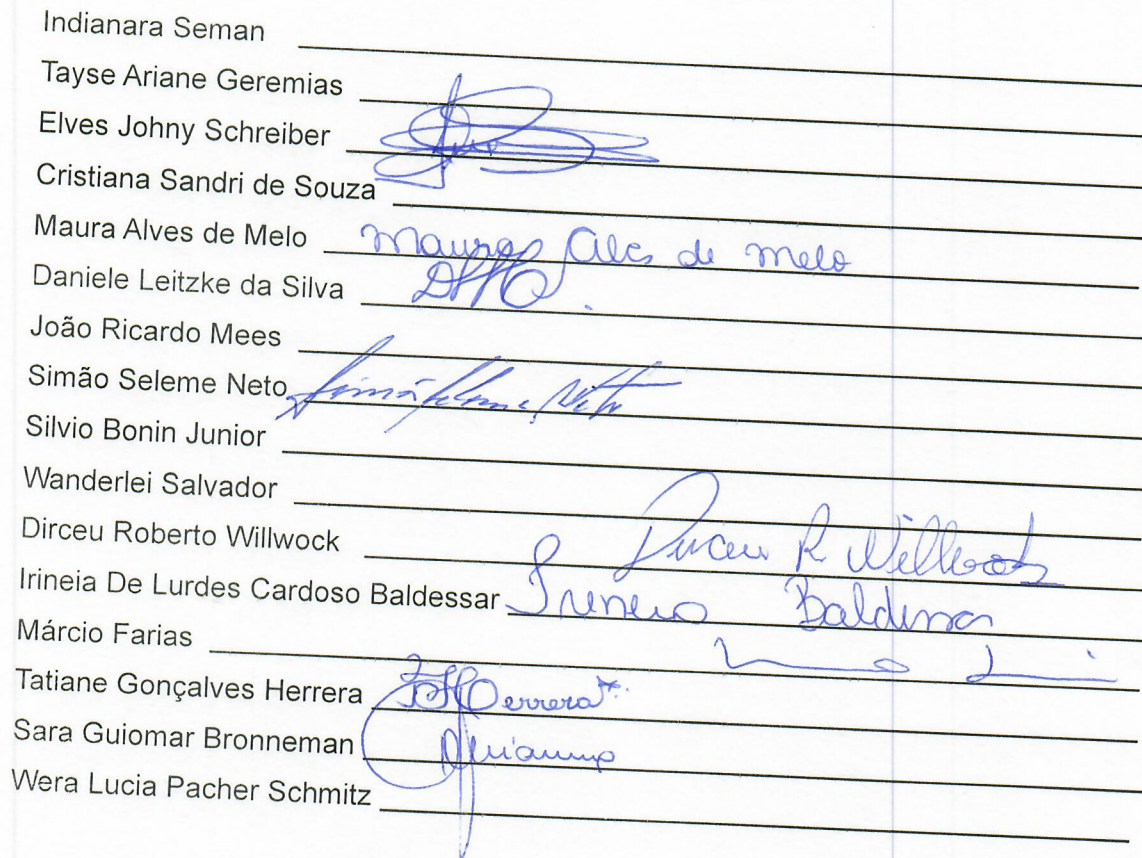 Indianara Seman
Tayse Ariane Geremias
Elves Johny Schreiber
Cristiana Sandri de Souza
Maura Alves de Melo Maura Alves de Melo
Daniele Leitzke da Silva
João Ricardo Mees
Simão Seleme Neto Simão Seleme Neto
Silvio Bonin Junior
Wanderlei Salvador
Dirceu Roberto Willwock Dirceu R Willwock
Irineia De Lurdes Cardoso Baldessar Irineia Baldessar
Márcio Farias
Tatiane Gonçalves Herrera Herrera
Sara Guiomar Bronneman
Wera Lucia Pacher Schmitz